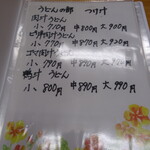 うどんの部 つけ汁
肉汁うどん
小 770円 中800円 大900円
ピリ辛肉汁うどん
小 790円 中870円 大950円
ゴマ肉汁うどん
小 790円 中890円 大950円
鴨汁 うどん
小 800円 中890円 大990円